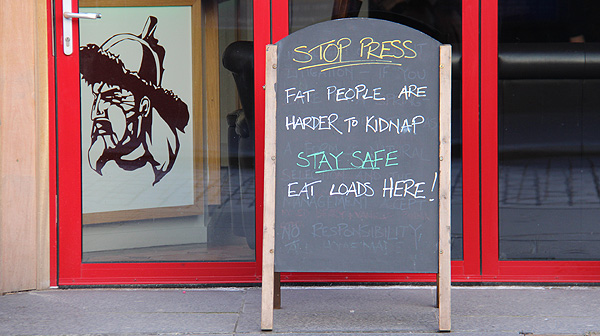 STOP PRESS
FAT PEOPLE ARE
HARDER TO KIDNAP
STAY SAFE
EAT LOADS HERE!
NO RESPONSIBILITY